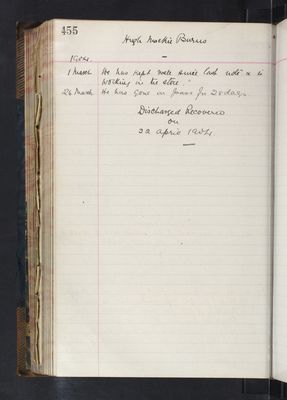 455
Hugh Mackie Burns
1904.
1 March He has kept well since last note & is
working in the store.
26 March He has gone on pass for 28 days.
Discharged Recovered
on
22 April 1904.